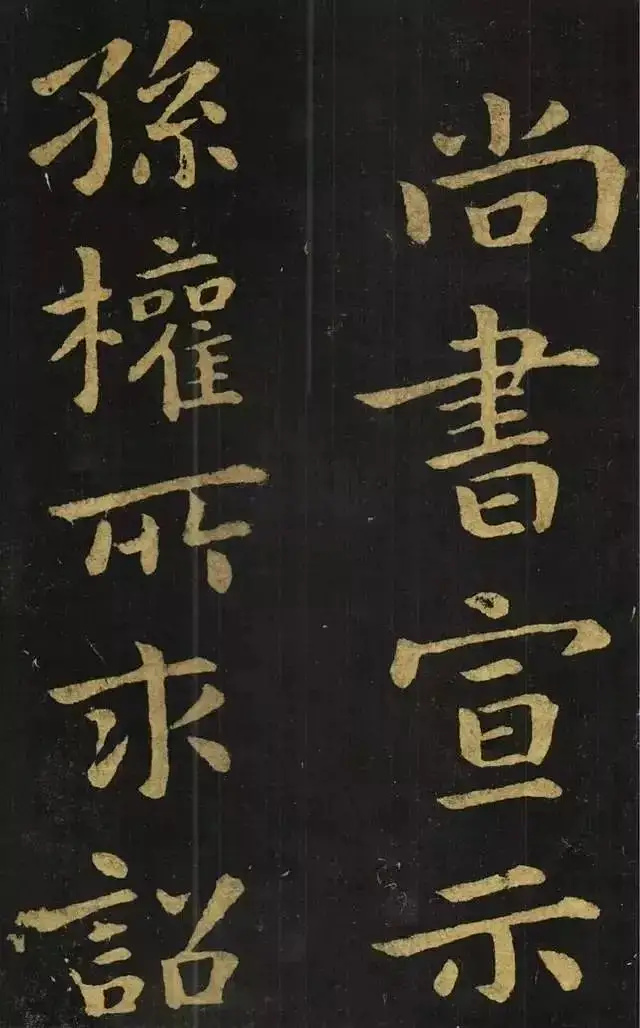 尚書宣示
孫權所求詔